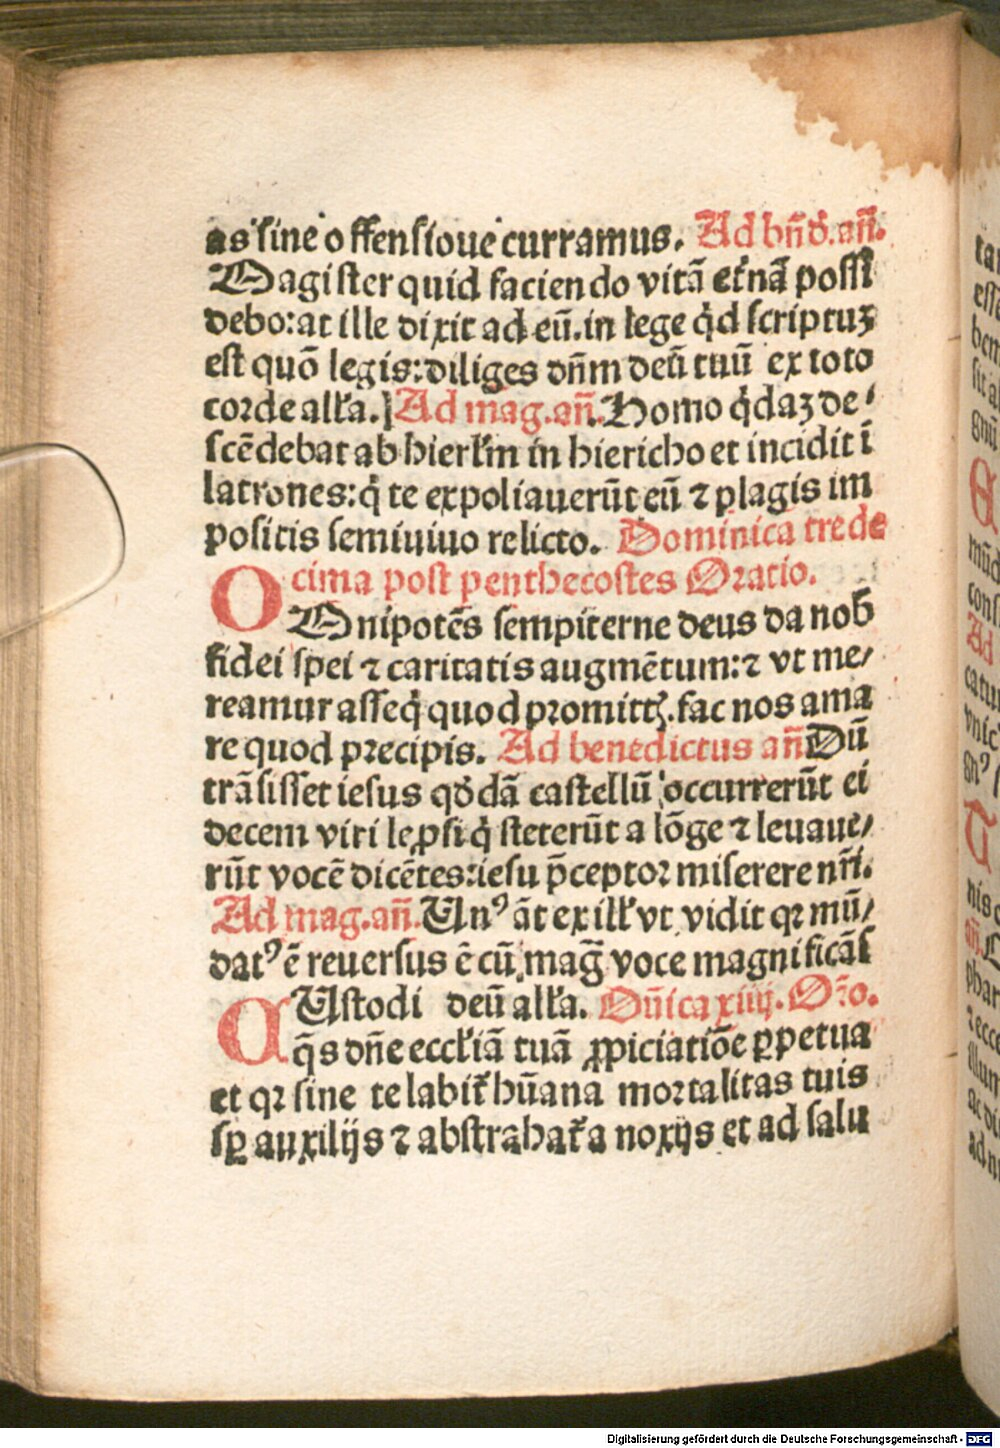 as ſine offenſioue curramus. Ad bn̄d. an̄.
Magiſter quid faciendo vitā et̄nā poſſi
debo: at ille dixit ad eū. in lege qd̓ ſcriptuꝫ
eſt quō legis: diliges dn̄m deū tuū ex toto
corde all̓a. Ad mag. an̄. Homo qͥdaꝫ de⸗
ſcēdebat ab hierl̓m in hiericho et incidit ī
latrones: qͥ te expoliauerūt eū ⁊ plagis im
poſitis ſemiuiuo relicto. Dominica trede
cima poſt penthecoſtes Oratio.
OMnipotēs ſempiterne deus da nob̄
fidei ſpei ⁊ caritatis augmētum: ⁊ vt me⸗
reamur aſſeqͥ quod promittꝫ. fac nos ama
re quod precipis. Ad benedictus an̄ Dū
trāſiſſet ieſus qd̓dā caſtellū occurrerūt ei
decem viri leꝓſi qͥ ſteterūt a lōge ⁊ leuaue⸗
rūt vocē dicētes: ieſu p̄ceptor miſerere nr̄i.
Ad mag. an̄. Unꝰ āt ex ill̓ vt vidit qꝛ mū⸗
datꝰ ē reuerſus ē cū maḡ voce magnificās
CUſtodi deū all̓a. Dn̄ica xiiij. Oro.
q̄s dn̄e eccl̓iā tuā ꝓpiciatiōe ꝑpetua
et qꝛ ſine te labit̄ hūana mortalitas tuis
ſꝑ auxilijs ⁊ abſtrahat̄ a noxijs et ad ſalu
Digitalisierung gefördert durch die Deutsche Forschungsgemeinschaft - DFG